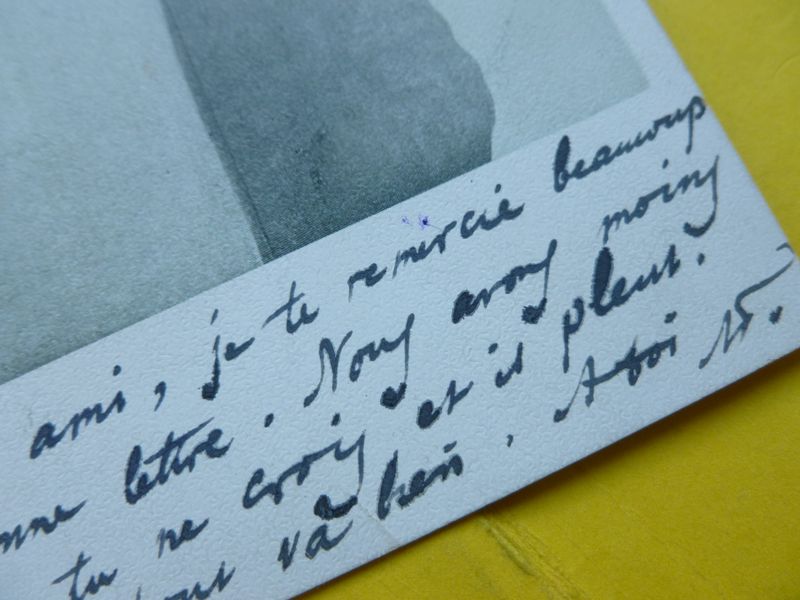 ami, je te remercie beaucoup
nne lettre. Nous avons moins
tu ne crois et il pleut.
out va bien. A toi